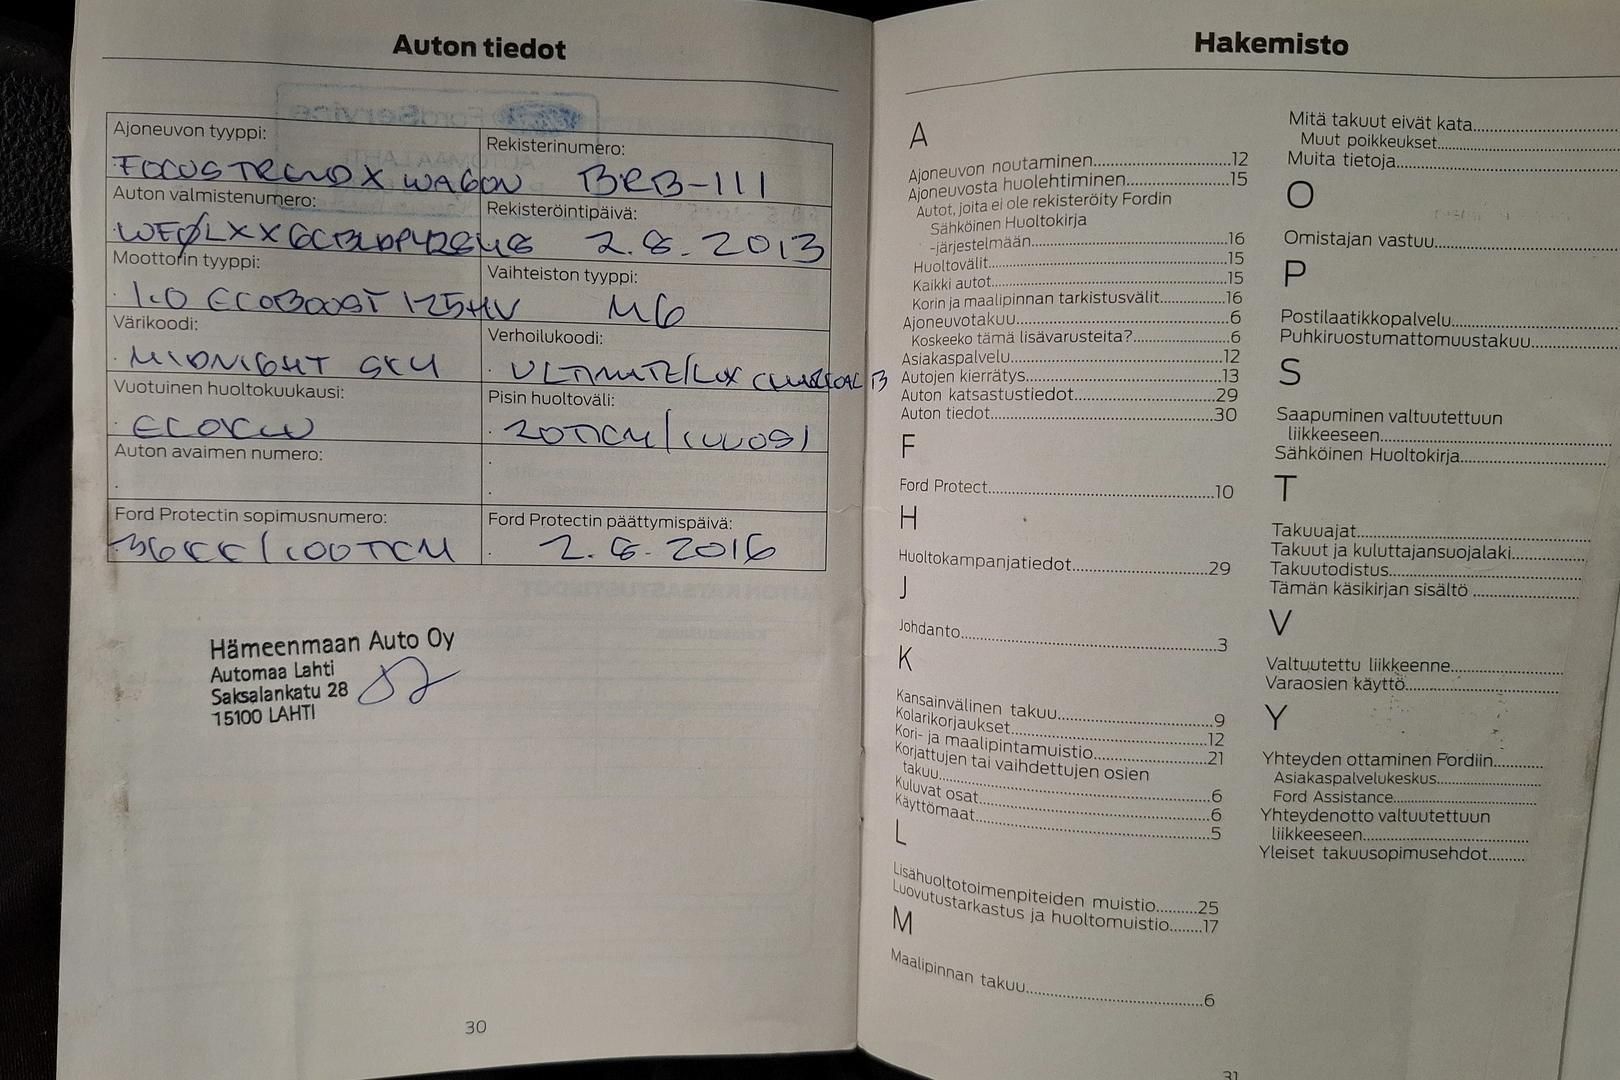 Auton tiedot
Ajoneuvon tyyppi:
FOCUS TREND X WAGON
Rekisterinumero:
BRB-111
Auton valmistenumero:
Rekisteröintipäivä:
2.8.2013
Moottorin tyyppi:
1.0 ECOBOOST 125HV
Vaihteiston tyyppi:
M6
Värikoodi:
MIDNIGHT SKY
Verhoilukoodi:
ULTIMATE/LUX CHARCOAL B
Vuotuinen huoltokuukausi:
ELOKUU
Pisin huoltoväli:
20TKM/1VUOSI
Auton avaimen numero:
Ford Protectin sopimusnumero:
36KK/100TKM
Ford Protectin päättymispäivä:
2.8.2016
Hämeenmaan Auto Oy
Automaa Lahti
Saksalankatu 28
15100 LAHTI
30
Hakemisto
A
Ajoneuvon noutaminen..........12
Ajoneuvosta huolehtiminen..........15
Autot, joita ei ole rekisteröity Fordin
Sähköinen Huoltokirja
-järjestelmään..........16
Huoltovälit..........15
Kaikki autot..........15
Korin ja maalipinnan tarkistusvälit..........16
Ajoneuvotakuu..........6
Koskeeko tämä lisävarusteita?..........6
Asiakaspalvelu..........12
Autojen kierrätys..........13
Auton katsastustiedot..........29
Auton tiedot..........30
F
Ford Protect..........10
H
Huoltokampanjatiedot..........29
J
Johdanto..........3
K
Kansainvälinen takuu..........9
Kolarikorjaukset..........12
Kori- ja maalipintamuistio..........21
Korjattujen tai vaihdettujen osien
takuu..........6
Kuluvat osat..........6
Käyttömaat..........5
L
Lisähuoltotoimenpiteiden muistio..........25
Luovutustarkastus ja huoltomuistio..........17
M
Maalipinnan takuu..........6
Mitä takuut eivät kata..........
Muut poikkeukset..........
Muita tietoja..........
O
Omistajan vastuu..........
P
Postilaatikkopalvelu..........
Puhkiruostumattomuustakuu..........
S
Saapuminen valtuutettuun
liikkeeseen..........
Sähköinen Huoltokirja..........
T
Takuuajat..........
Takuut ja kuluttajansuojalaki..........
Takuutodistus..........
Tämän käsikirjan sisältö..........
V
Valtuutettu liikkeenne..........
Varaosien käyttö..........
Y
Yhteyden ottaminen Fordiin..........
Asiakaspalvelukeskus..........
Ford Assistance..........
Yhteydenotto valtuutettuun
liikkeeseen..........
Yleiset takuusopimusehdot..........
31